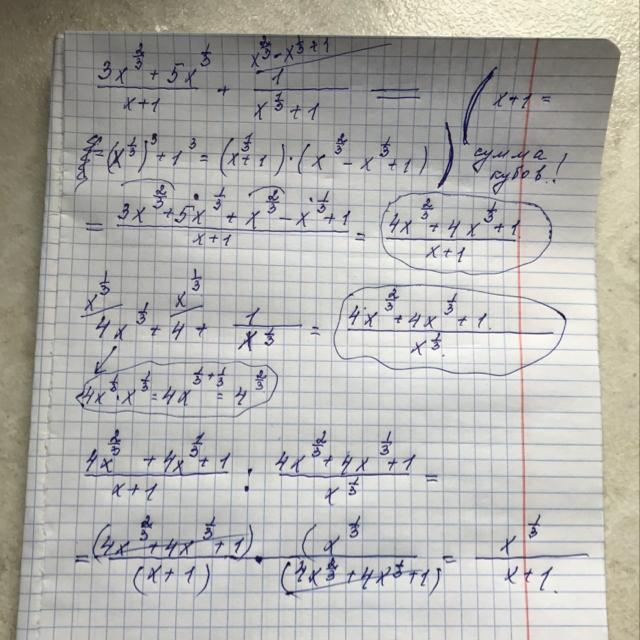 x^{2/3} - x^{1/3} + 1
(3x^{2/3} + 5x^{1/3})/(x+1) + 1/(x^{1/3} + 1) = (x+1 =
= (x^{1/3})^3 + 1^3 = (x^{1/3} + 1) · (x^{2/3} - x^{1/3} + 1)) сумма кубов!
= (3x^{2/3} + 5x^{1/3} + x^{2/3} - x^{1/3} + 1)/(x+1) = (4x^{2/3} + 4x^{1/3} + 1)/(x+1)
x^{1/3} x^{1/3}
4x^{1/3} + 4 + 1/x^{1/3} = (4x^{2/3} + 4x^{1/3} + 1)/x^{1/3}
4x^{1/3} · x^{1/3} = 4x^{1/3 + 1/3} = 4^{2/3}
(4x^{2/3} + 4x^{1/3} + 1)/(x+1) : (4x^{2/3} + 4x^{1/3} + 1)/x^{1/3} =
= (4x^{2/3} + 4x^{1/3} + 1)/(x+1) · (x^{1/3}/(4x^{2/3} + 4x^{1/3} + 1) = x^{1/3}/(x+1).